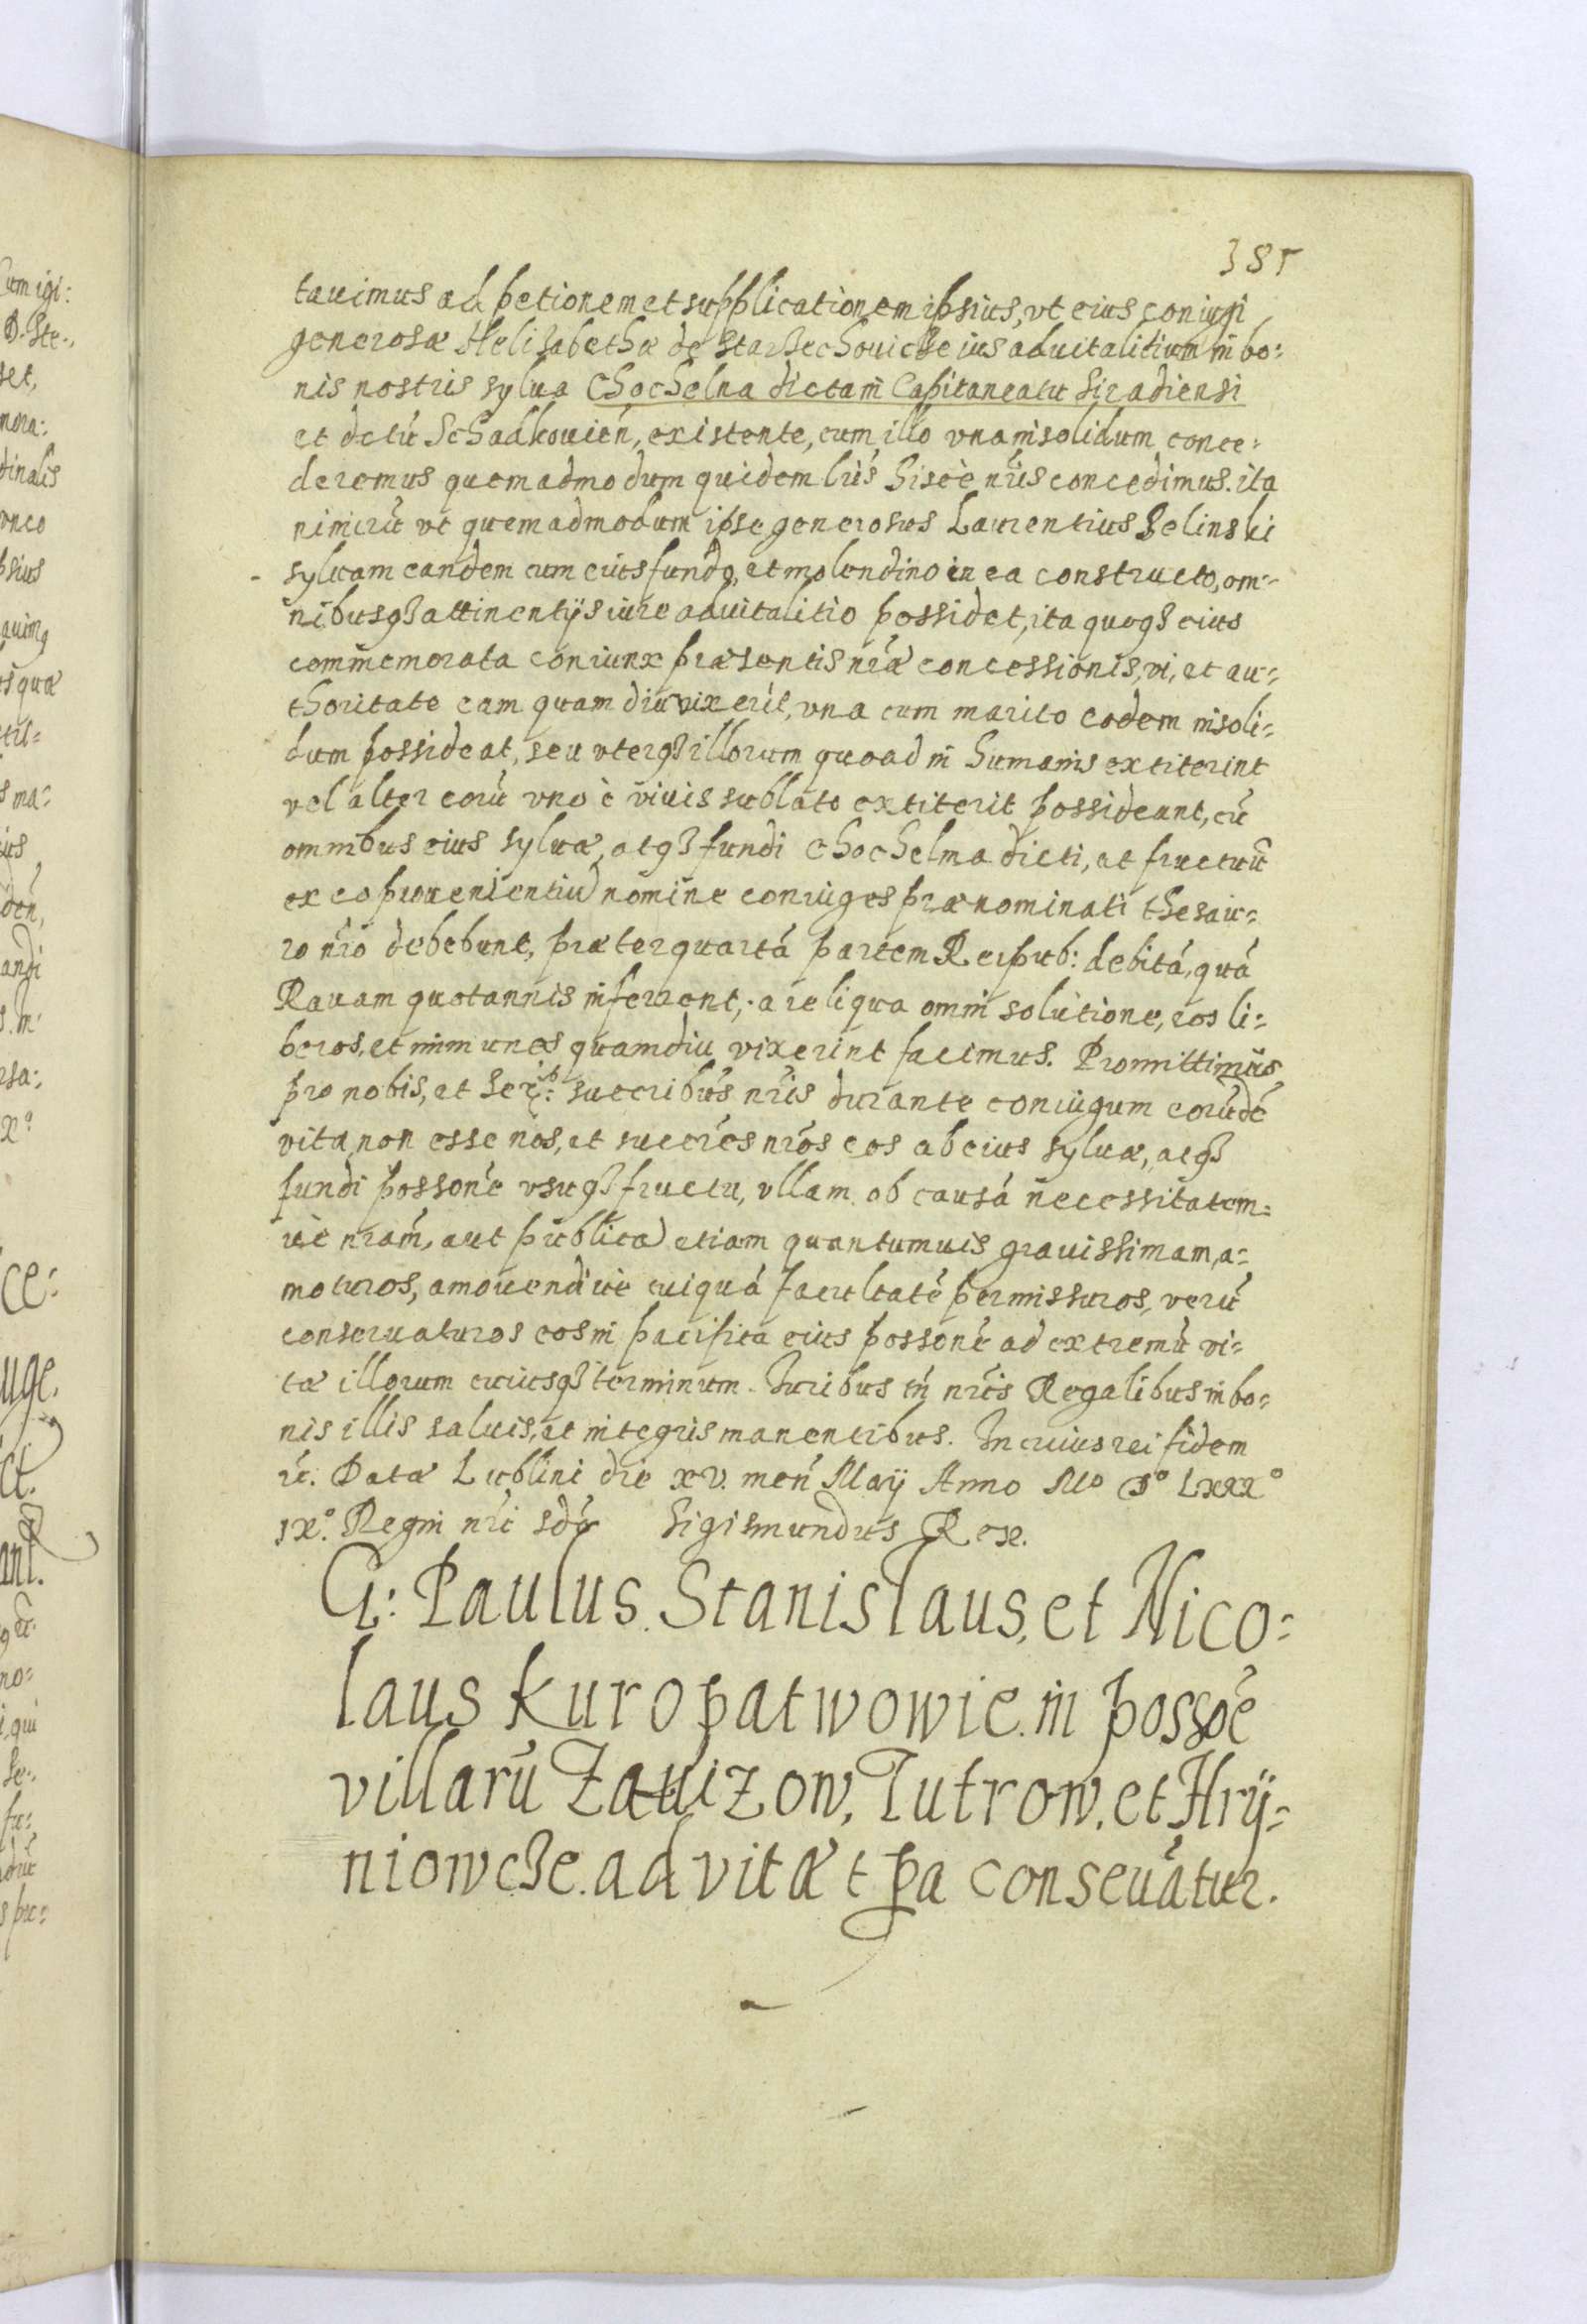 385
tauimus ad petionem et supplicationem ipsius, vt eius coniugi
generosæ Helisabethæ de Starzechouicze ius aduitalitium in bo:
nis nostris sylua Chochelna dicta in Capitaneatu Siradiensi
et Schadkouień, existente, cum illo vna insolidum conce:
deremus quemadmodum quidem lrís hiscè nrís concedimus. ita
nimirú vt quemadmodum ipse generosus Laurentius Belinski
syluam eandem cum eius fundo, et molendino in ea constructo, om:
nibusqз attinentijs iure aduitalitio possidet, ita quoqз eius
commemorata coniunx præsentis nræ concessionis, vi, et au:
thoritate eam quam diu vixerit, vna cum marito eodem insoli:
dum possideat, seu vterqз illorum quoad in humanis extiterint
vel alter eorú vno è viuis sublato extiterit possideant, cú
omnibus eius syluæ, atqз fundi Chochelna dicti, et fructuú
ex eo prouenientiu nomine coniuges prænominati thesau:
ro nrò debebunt, præterquartá partem Reipub: debitá, quá
Rauam quotannis inferrent, a reliqua omni solutione, eos li:
beros, et immunes quamdiu vixerint facimus. Promittimus
pro nobis, et succribus nrís durante coniugum eorúdé
vita non esse nos, et succres nros eos ab eius syluæ, atqз
fundi possoné vsuqз fructu, vllam ob causá necessitatem:
uè nram, aut publica etiam quantumuis grauissimam, a:
moturos, amouendiuè cuiquá facultaté permissuros, verú
conseruaturos eos in pacifica eius possoné ad extremú vi:
tæ illorum cuiusqз terminum. Iuribus tn nrís Regalibus in bo:
nis illis saluis, et integris manentibus. In cuius rei fidem
Data Lublini die xv. men Maij Anno Mo Do Lxxxo
ixo. Regni nrí Sigismundus Rex.
G: Paulus. Stanislaus, et Nico:
laus Kuropatwowie in possoé
villarú Zauizow, Tutrow, et Hrÿ:
niowcze ad vitæ t pa conseuátur.